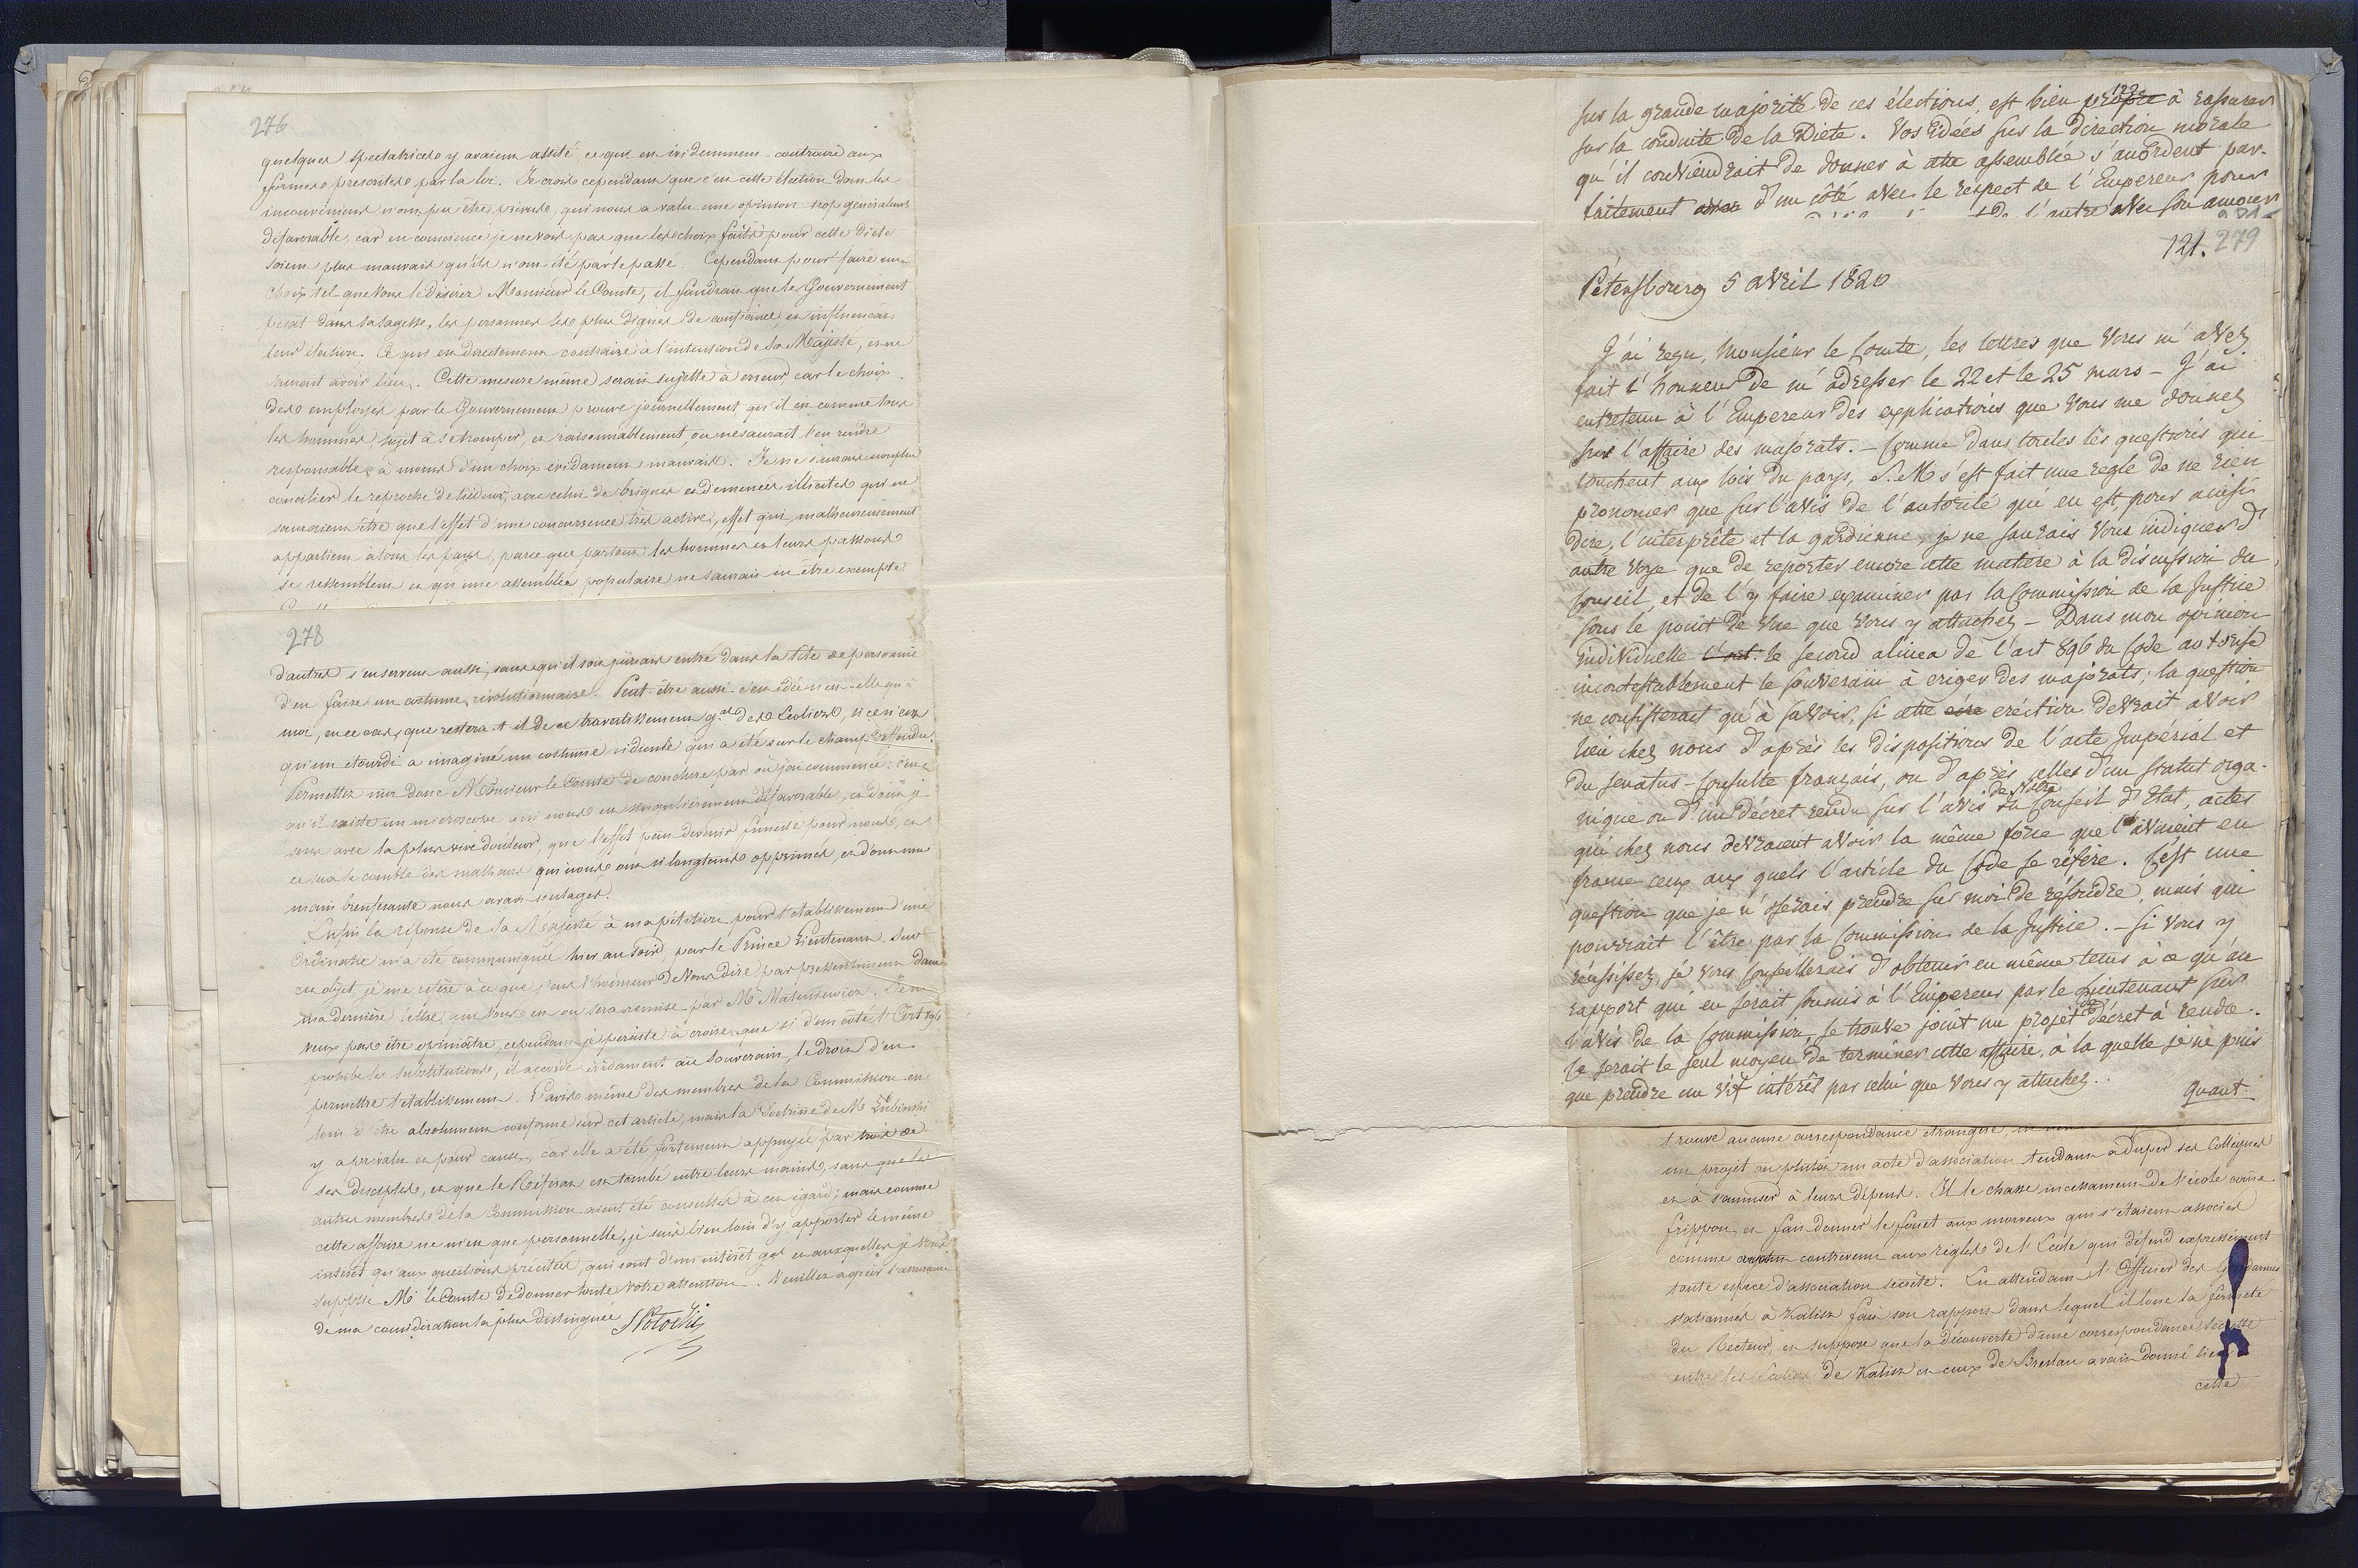 276
quelques spectatrices y avaient assisté, ce qui est évidemment contraire aux
formes prescrites par la loi. Je crois cependant que c'est cette élection dont les
inconvéniens n'ont pu être prévus, qui nous a valu une opinion trop généralement
défavorable, car en conscience je ne vois pas que les choix faits pour cette Diete
soient plus mauvais qu'ils n'ont été par le passé. Cependant pour faire un
choix tel que Vous le désirez Monsieur le Comte, il faudrait que le Gouvernement
dans sa sagesse, les personnes les plus dignes de confiance, en influençant
leur élection. Ce qui est directement contraire à l'intention de Sa Majesté, et ne
saurait avoir lieu. Cette mesure même serait sujette à erreur, car le choix
des employés par le Gouvernement prouve journellement qu'il est comme tous
les hommes, sujet à se tromper, et raisonnablement, on ne saurait l'en rendre
responsable, à moins d'un choix évidament mauvais. Je ne saurais non plus
concilier le reproche de tiédeur, avec celui de brigues et de menées illicites qui ne
sauraient être que l'effet d'une concurrence très active, effet qui malheureusement
appartient à tous les pays, parce que partout les hommes et leurs passions
se ressemblent et qu'une assemblée populaire ne saurait en être exempte
278
d'autres s'en servent aussi, sans qu'il soit jamais entré dans la tête de personne
d'en faire un costume révolutionnaire. Peut-être aussi cette idée n'en est-elle qu'à
moi, en ce cas, que restera-t-il de ce travestissement gal des Ecoliers, si ce n'est
qu'un étourdi a imaginé un costume ridicule qui a été sur le champ défendu.
Permettez moi donc Monsieur le Comte de conclure par où j'ai commencé: c'est
qu'il existe un microscope qui nous est singulièrement défavorable, et dont je
sens avec la plus vive douleur, que l'effet peut devenir funeste pour nous, et
le comble des malheurs qui nous ont si longtems opprimés, et dont une
main bienfesante nous avait soulagés.
Enfin la réponse de Sa Majesté à ma pétition pour l'établissement d'une
Ordinatie m'a été communiquée hier au soir, par le Prince Lieutenant. Sur
cet objet, je me réfère à ce que j'eus l'honneur de Vous dire par pressentiment dans
ma dernière lettre, qui Vous est ou sera remise par Mr Matuszewicz. Je ne
veux pas être opiniâtre, cependant je persiste à croire que si d'un côté l'Art 896
prohibe les substitutions, il accorde évidament au Souverain, le droit d'en
permettre l'établissement. L'avis même des membres de la Commission est
loin d'être absolument conforme sur cet article, mais la Doctrine de Mr Lubinski
y a prévalu et pour cause, car elle a été fortement appuyée par trois de
ses disciples, et que le Référat est tombé entre leurs mains, sans que les
autres membres de la Commission aient été consultés à cet égard; mais comme
cette affaire ne m'est que personnelle, je suis bien loin d'y apporter le même
intérêt qu'aux questions précitées, qui sont d'un intérêt gal et auxquelles je Vous
supplie Mr le Comte de donner toute Votre attention. Veuillez agréer l'assurance
de ma considération la plus distinguée
SPotocki
122
sur la grande majorité de ces élections, est bien propre à rassurer
sur la conduite de la Diete. Vos idées sur la direction morale
qu'il conviendrait de donner à cette assemblée s'accordent par-
faitement avec d'un côté avec le respect de l'Empereur pour
de l'autre avec son amour
121. 279
Pétersbourg 5 avril 1820
J'ai reçu, Monsieur le Comte, les lettres que Vous m'avez
fait l'honneur de m'adresser le 22 et le 25 mars – J'ai
entretenu à l'Empereur des explications que Vous me donnez
sur l'affaire des majorats. – Comme dans toutes les questions qui
touchent aux lois du pays, S. M s'est fait une regle de ne rien
prononcer que sur l'avis de l'autorité qui en est, pour ainsi
dire, l'interprête et la gardienne, je ne saurais Vous indiquer d'
autre voye que de reporter encore cette matiere à la discussion du
Conseil, et de l'y faire examiner par la Commission de la Justice
sous le point de vue que Vous y attachez – Dans mon opinion
individuelle l'art. le second alinea de l'art 896 du Code autorise
incontestablement le Souverain à eriger des majorats; la question
ne consisterait qu'à savoir, si cette eré eréction devrait avoir
lieu chez nous d'après les dispositions de l'acte Impérial et
du senatus-consulte français, ou d'après celles d'un statut orga-
nique ou d'un décret rendu sur l'avis du de Notre Conseil d'Etat, actes
qui chez nous devraient avoir la même force que l'avaient en
france ceux aux quels l'article du Code se réfère. C'est une
question que je n'oserais prendre sur moi de résoudre, mais qui
pourrait l'être par la Commission de la Justice. – Si Vous y
réussissez, je Vous conseillerais d'obtenir en même tems à ce qu'au
rapport qui en serait soumis à l'Empereur par le Lieutenant sur
l'avis de la Commission, se trouve joint un projet de décret à rendre.
Ce serait le seul moyen de terminer cette affaire, à la quelle je ne puis
que prendre un vif intérêt par celui que Vous y attachez..
Quant
trouve aucune correspondance étrangère,
un projet ou plutôt un acte d'association tendant à duper ses Collègues
et à s'amuser à leurs dépens. Il le chasse incessament de l'école come
frippon, et fait donner le fouet aux morveux qui s'étaient associés
comme ayant contrevenu aux règles de l'Ecole qui défend expressément
toute espèce d'association secrète. En attendant l'Officier des Gendarmes
stationnés à Kalisz fait son rapport dans lequel il loue la fermeté
du Recteur, et suppose que la découverte d'une correspondance secrette
entre les Ecoliers de Kalisz et ceux de Breslau avait donné lieu
cette